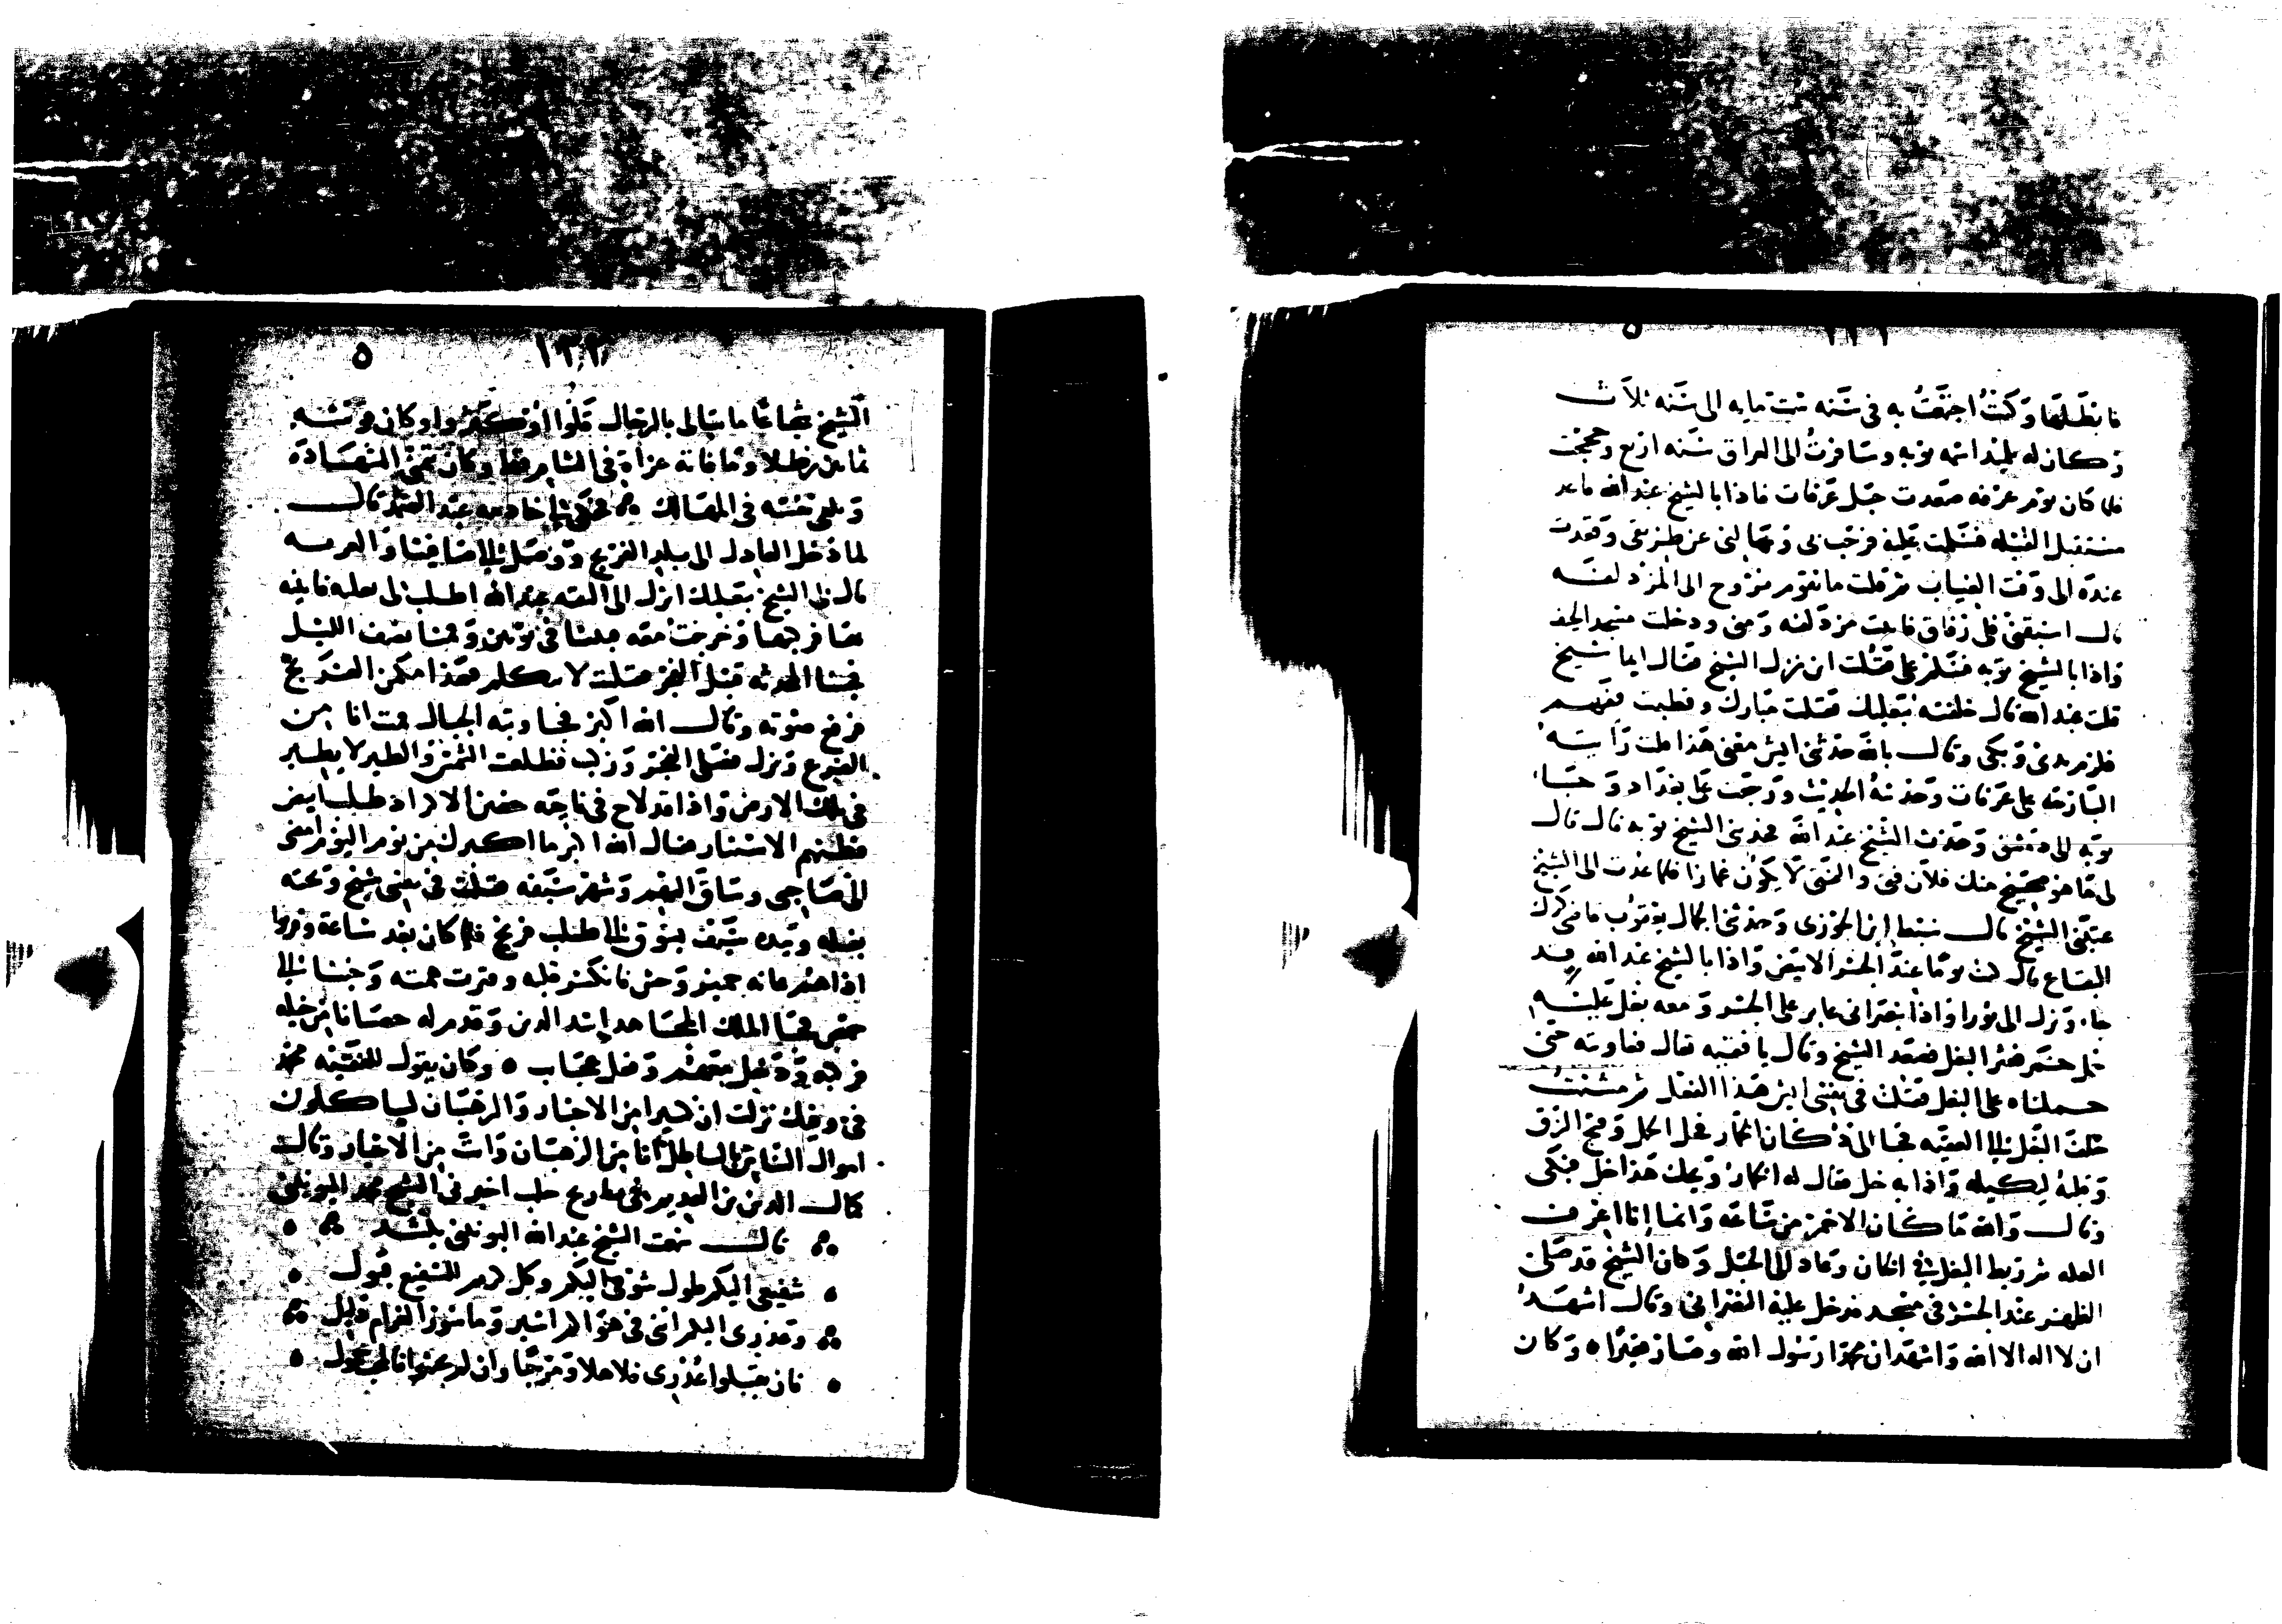 فابطلها وكنتُ اجتمعتُ به في سنه ست مايه الى سنه ثلاث
وكان له تلميذ اسمه توبه وسافرتُ الى العراق سنه اربع وحججت
فلما كان يوم عرفه صعدت جبل عرفات فاذا بالشيخ عبد الله قاعد
مستقبل القبله فسلمت عليه فرحب بي وسالني عن طريقي وقعدت
عنده الى وقت الغياب ثم قلت ما نقوم نروح الى المزدلفه
قال اسبقني فلي رفاق فاتيت مزدلفه ومنى ودخلت مسجد الخيف
واذا بالشيخ توبه فسلم علي فقلت اين نزل الشيخ فقال ايما شيخ
قلت عبد الله قال خلفته ببعلبك فقلت مبارك وقطبت ففهم
فلزم بيدي وبكى وقال بالله حدثني ايش معنى هذا قلت رايته
البارحه على عرفات وحدثته الحديث ورجعت على بغداد وجا
توبه الى دمشق وحدث الشيخ عبد الله فحدثني الشيخ توبه قال قال
لي ما هو صحيح منك فلان فتى والفتى لا يكون غمازا فلما عدت الى الشيخ
عتبني الشيخ قال سبط ابن الجوزي وحدثني الجمال يعقوب قاضي كرك
البقاع قال كنت يوما عند الجسر الابيض واذا بالشيخ عبد الله قد
جاء ونزل الى ثورا واذا بنصراني عابر على الجسر ومعه بغل عليه
حمل خمر فعثر البغل فصعد الشيخ وقال يا فقيه تعال فعاونته حتى
حملناه على البغل فقلت في نفسي ايش هذا الفعل ثم مشيت
خلف البغل الى العقيبه فجا الى دكان الخمار فحل الحمل وفتح الزق
وقلبه ليكيله واذا به خل فقال له الخمار ويحك هذا خل فبكى
وقال والله ما كان الا خمر من ساعه وانما انا اعرف
العله ثم ربط البغل في الخان وعاد الى الجبل وكان الشيخ قد صلى
الظهر عند الجسر في مسجد فدخل عليه النصراني وقال اشهد
ان لا اله الا الله واشهد ان محمدا رسول الله وصار فقيرا ٥ وكان
١٣٢ ٥
الشيخ شجاعا ما يبالي بالرجال قلوا او كثروا وكان قوسه
ثمانين رطلا وما فاته غزاة في الشام قط وكان يتمنى الشهاده
ويلقي نفسه في المهالك فحكى لي خادمه عبد الصمد قال
لما دخل العادل الى بلد الفرنج ووصل الى صافيتا والعريمه
قال لي الشيخ ببعلبك انزل الى الفقه عبد الله اطلب لي بغله فاتيته
بها فركبها وخرجت معه فبتنا في يونين وقمنا نصف الليل
فجينا المحدثه قبل الفجر فقلت لا تتكلم فهذا مكمن الفرنج
فرفع صوته وقال الله اكبر فجاوبته الجبال فمت انا من
الفزع ونزل فصلى الفجر وركب فطلعت الشمس والطير لا يطير
في تلك الارض واذا قد لاح في ناحيه حصن الاكراد طلب ابيض
فظنهم الاستتار فقال الله اكبر ما ابركك من يوم اليوم امضي
الى صاحبي وساق اليهم وشهر سيفه فقلت في نفسي شيخ وتحته
بغله وبيده سيف يسوق الى طلب فرنج فلما كان بعد ساعة وقربوا
اذا هم مائه حمير وحش فانكسر قلبه وفترت همته وجينا الى
حمص فجا الملك المجاهد اسد الدين وقدم له حصانا من خيله
فركبه ودخل معهم وفعل عجايب ٥ وكان يقول للفقيه محمد
في وفيك نزلت ان كثيرا من الاحبار والرهبان لياكلون
اموال الناس بالباطل انا من الرهبان وانت من الاحبار وقال
كمال الدين بن العديم في تاريخ حلب اخبرني الشيخ محمد اليونيني
قال سمعت الشيخ عبد الله اليونيني ينشد
شفيعي اليكم طول شوقي اليكم وكل كريم للشفيع قبول
وعذري اليكم انني في هواكم اسير وماسور الغرام ذليل
فان تقبلوا عذري فاهلا ومرحبا وان لم تجيبوا فالمحب حمول